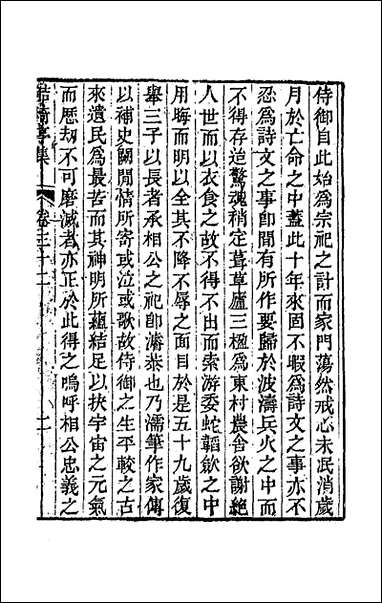 侍御自此始爲宗祀之計而家門蕩然戒心未泯消歲
月於亡命之中蓋此十年來固不暇爲詩文之事亦不
忍爲詩文之事卽閒有所作要歸於波濤兵火之中而
不得存迨驚魂稍定葺草廬三楹爲東村農舍欲謝絕
人世而以衣食之故不得不出而索游委蛇韜歛之中
用晦而明以全其不降不辱之面目於是五十九歲復
舉三子以長者承相公之祀卽濬恭也乃濡筆作家傳
以補史闕閒情所寄或泣或歌故侍御之生平較之古
來遺民爲最苦而其神明所蘊結足以挾宇宙之元氣
而歷刧不可磨滅者亦正於此得之嗚呼相公忠義之
鮚埼亭集 卷二十二